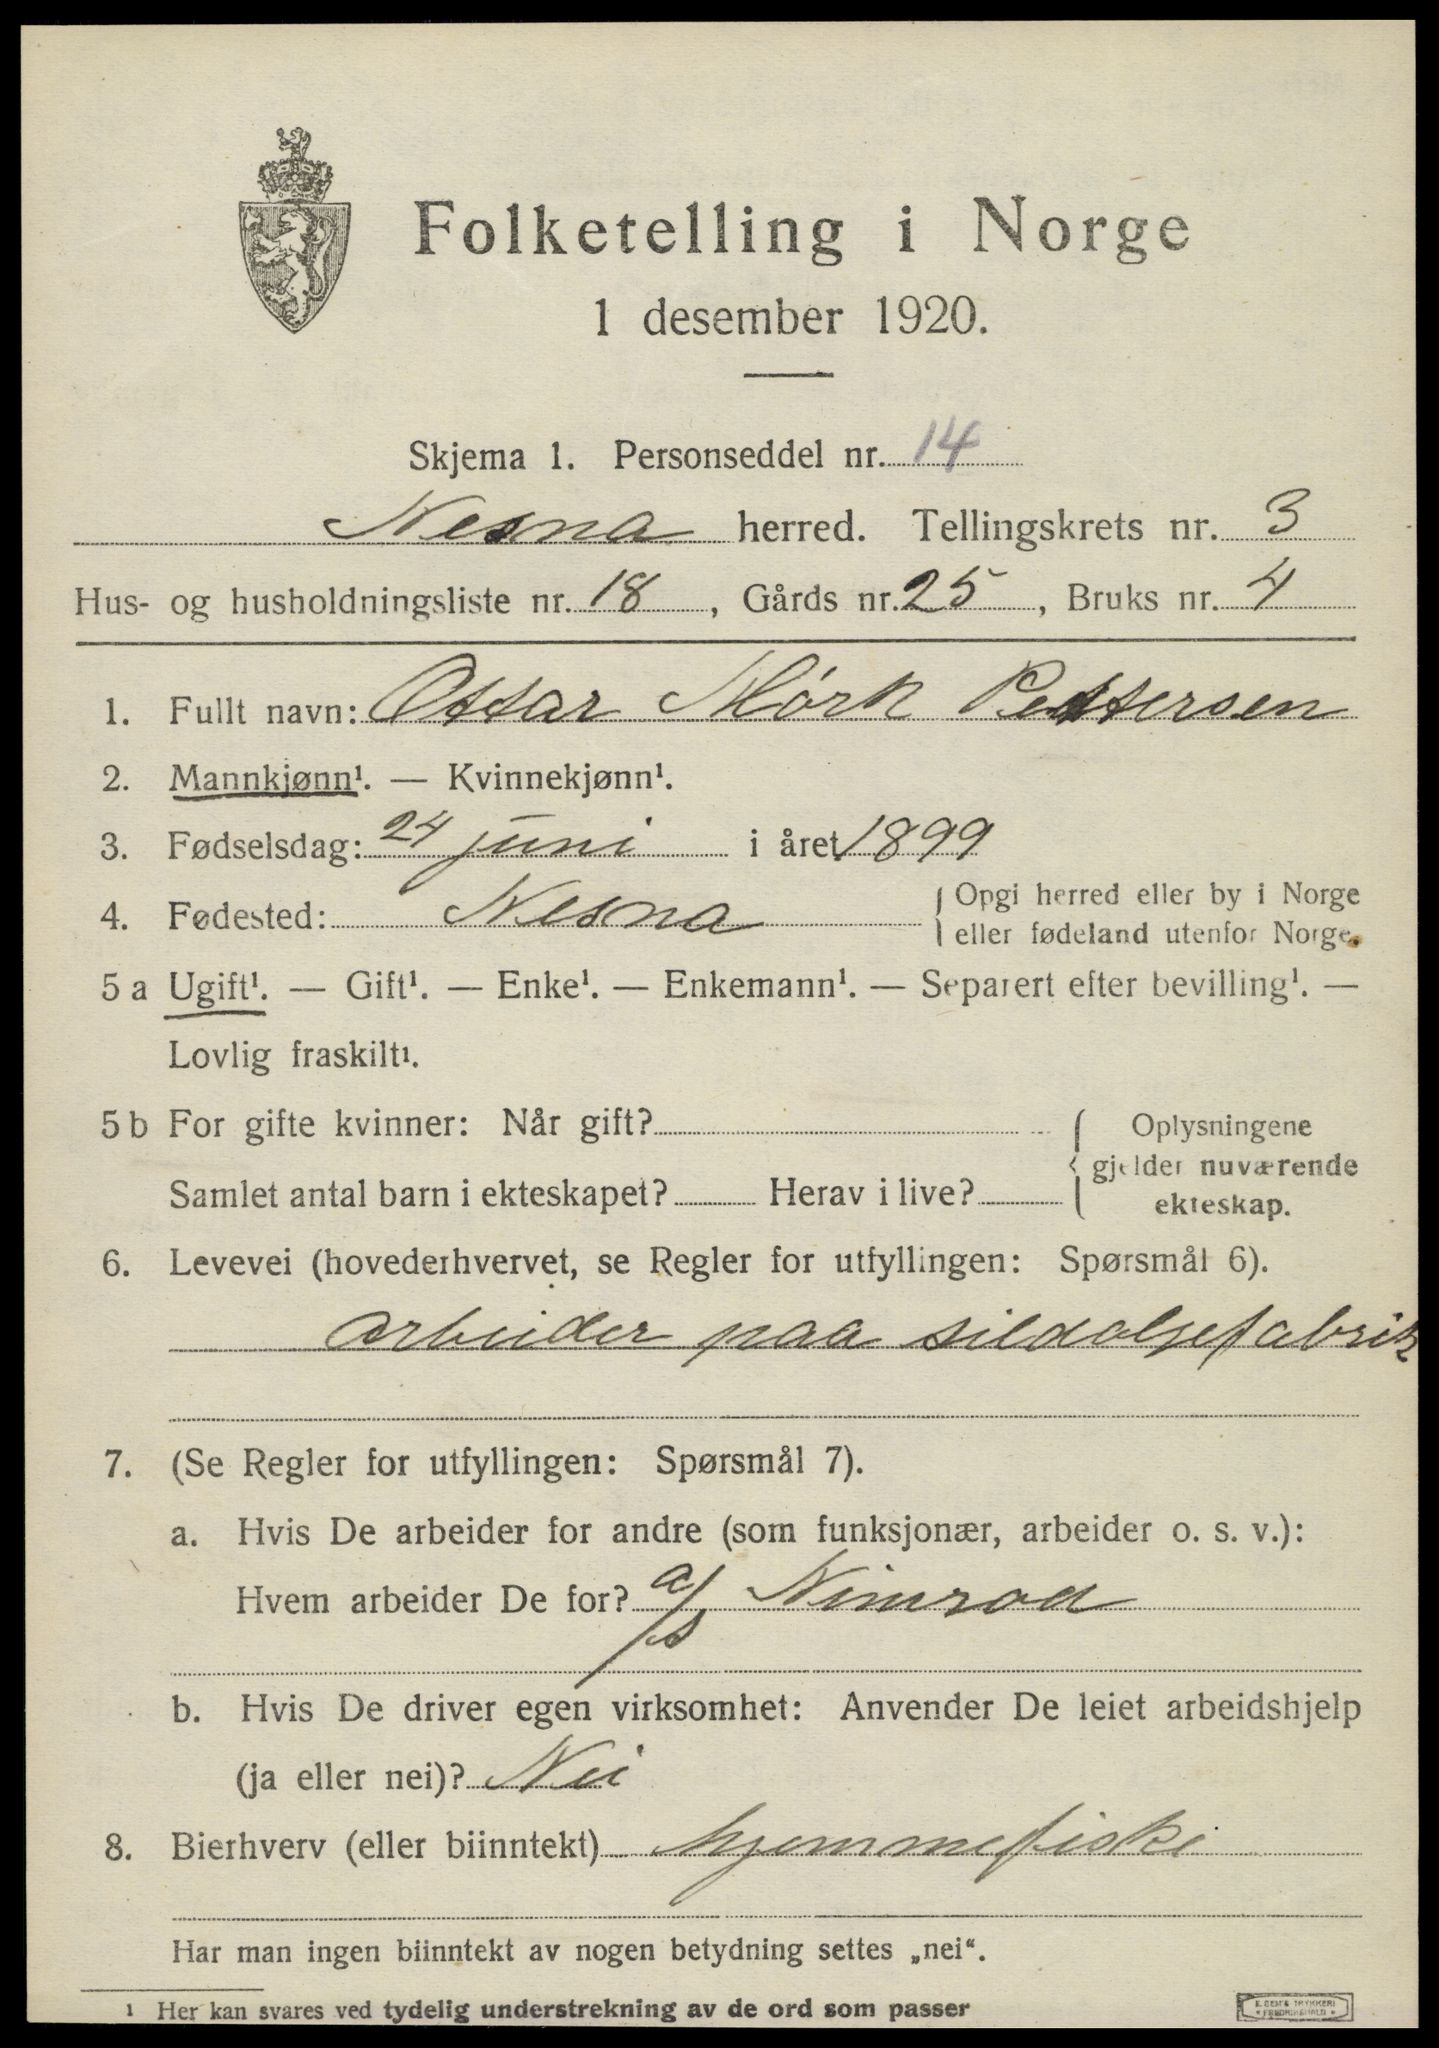 Folketelling i Norge
1 desember 1920.
Skjema 1. Personseddel nr. 14
Nesna herred. Tellingskrets nr. 3
Hus- og husholdningsliste nr. 18, Gårds nr. 25, Bruks nr. 4
1. Fullt navn: Ottar Mørk Pettersen
2. Mannkjønn¹. — Kvinnekjønn¹.
3. Fødselsdag: 24 juni i året 1899
4. Fødested: Nesna { Opgi herred eller by i Norge
eller fødeland utenfor Norge.
5 a Ugift¹. — Gift¹. — Enke¹. — Enkemann¹. — Separert efter bevilling¹. —
Lovlig fraskilt¹.
5 b For gifte kvinner: Når gift? { Oplysningene
gjelder nuværende
Samlet antal barn i ekteskapet? Herav i live? ekteskap.
6. Levevei (hovederhvervet, se Regler for utfyllingen: Spørsmål 6).
arbeider paa sildoljefabrik
7. (Se Regler for utfyllingen: Spørsmål 7).
a. Hvis De arbeider for andre (som funksjonær, arbeider o. s. v.):
Hvem arbeider De for? a/s Nimrod
b. Hvis De driver egen virksomhet: Anvender De leiet arbeidshjelp
(ja eller nei)? Nei
8. Bierhverv (eller biinntekt) hjemmefiske
Har man ingen biinntekt av nogen betydning settes „nei“.
¹ Her kan svares ved tydelig understrekning av de ord som passer
E. SEM'S TRYKKERI
* FREDRIKSHALD *